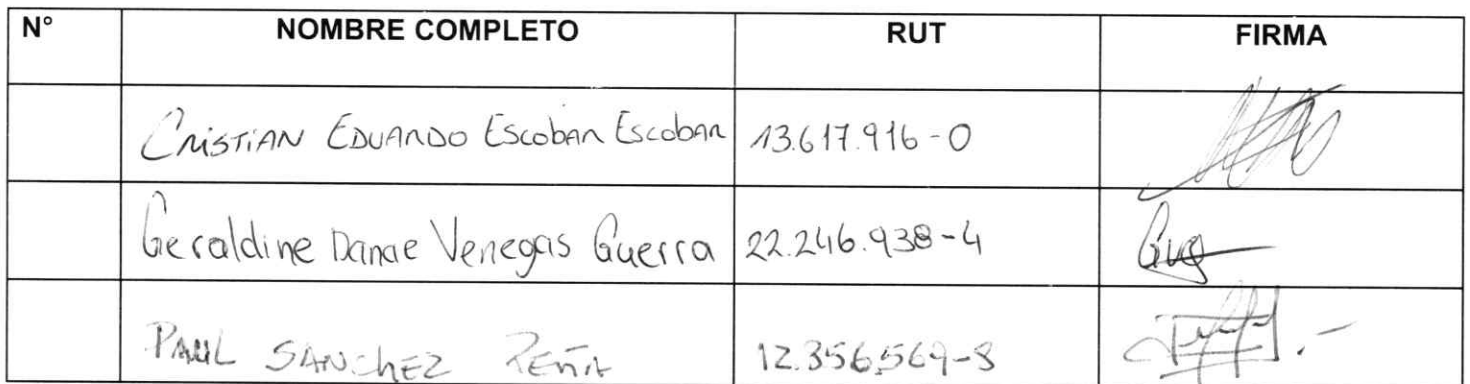 N° NOMBRE COMPLETO RUT FIRMA
CRISTIAN EDUARDO Escobar Escobar 13.617.916-0
Geraldine Danae Venegas Guerra 22.246.938-4
PAUL SANCHEZ PEÑA 12.356.569-8